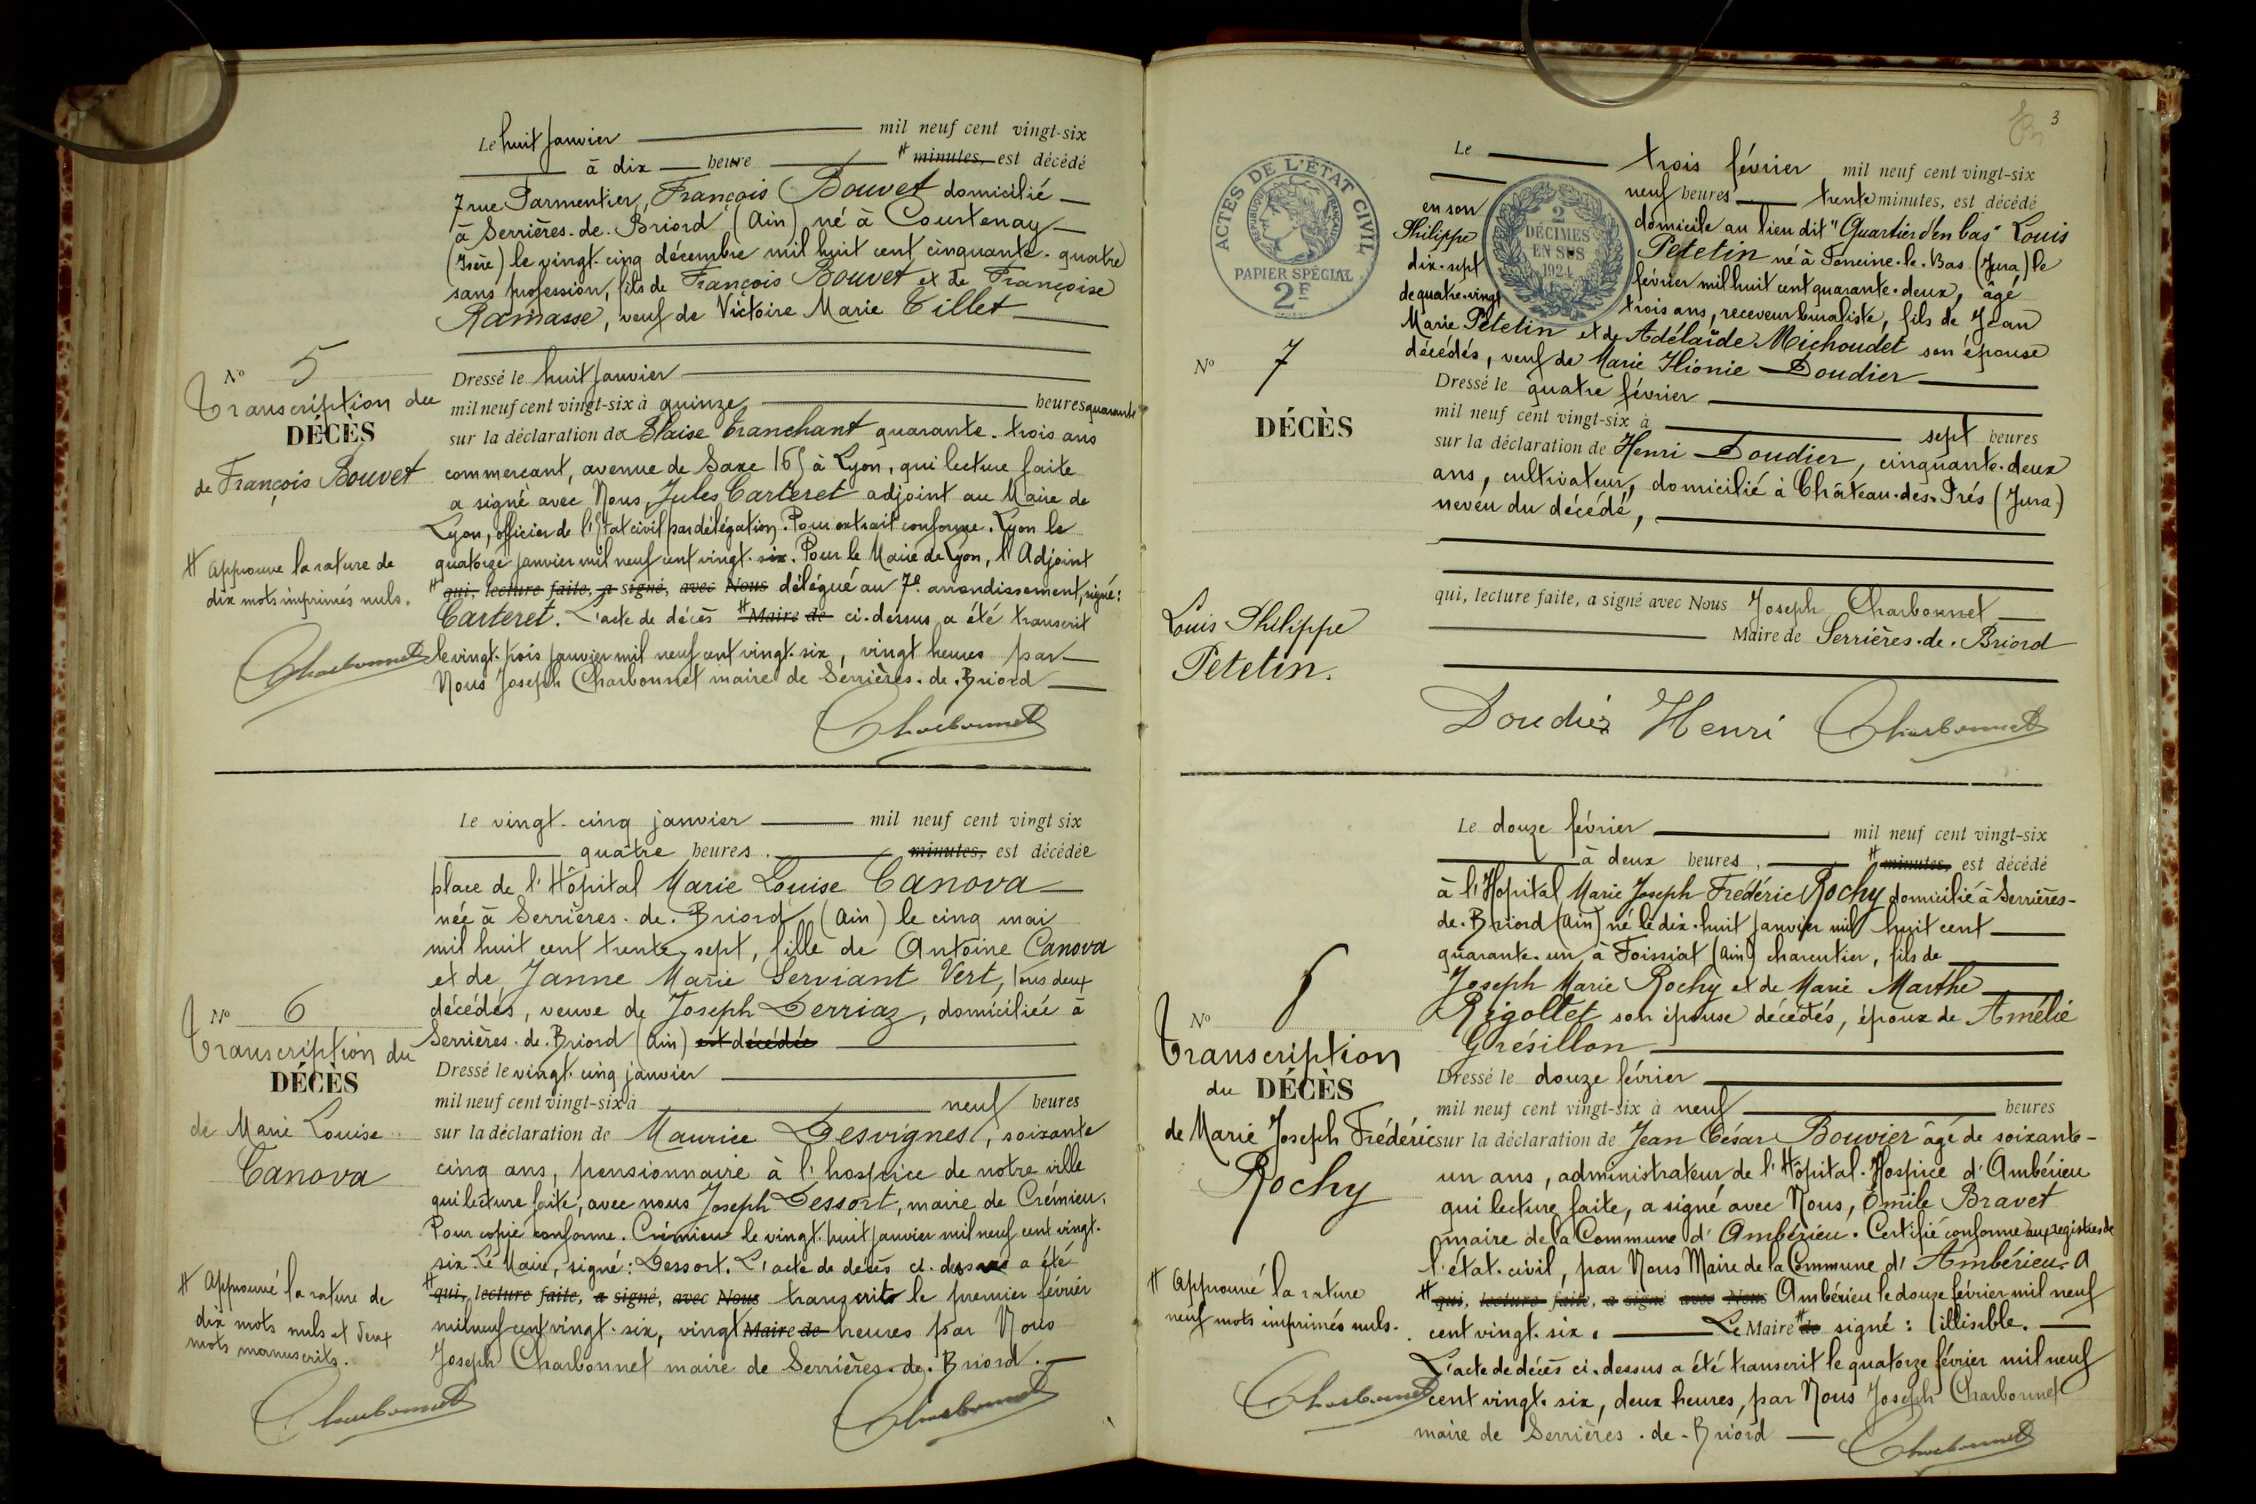 Le huit janvier mil neuf cent vingt-six
à dix heure # minutes, est décédé
7 rue Parmentier, François Bouvet domicilié
à Serrières-de-Briord (Ain) né à Courtenay
(Isère) le vingt-cinq décembre mil huit cent cinquante-quatre
sans profession, fils de François Bouvet et de Françoise
Ramasse, veuf de Victoire Marie Tillet
No 5
Transcription du
DÉCÈS
de François Bouvet
# Approuve la rature de
dix mots imprimés nuls.
Charbonnet
Dressé le huit janvier
mil neuf cent vingt-six à quinze heures quarante
sur la déclaration de Blaise Tranchant quarante-trois ans
commerçant, avenue de Saxe 165 à Lyon, qui lecture faite
a signé avec Nous, Jules Carteret adjoint au Maire de
Lyon, officier de l'Etat civil par délégation. Pour extrait conforme. Lyon le
quatorze janvier mil neuf cent vingt-six. Pour le Maire de Lyon, l'Adjoint
# qui, lecture faite, a signé, avec Nous délégué au 7e arrondissement, signé:
Carteret. L'acte de décès # Maire de ci-dessus a été transcrit
le vingt-trois janvier mil neuf cent vingt-six, vingt heures par
Nous Joseph Charbonnet maire de Serrières-de-Briord
Charbonnet
Le vingt-cinq janvier mil neuf cent vingt six
quatre heures minutes, est décédée
place de l'Hôpital Marie Louise Canova
née à Serrières-de-Briord (Ain) le cinq mai
mil huit cent trente-sept, fille de Antoine Canova
et de Janne Marie Serviant Vert, tous deux
décédés, veuve de Joseph Derriaz, domiciliée à
Serrières-de-Briord (Ain) est décédée
No 6
Transcription du
DÉCÈS
de Marie Louise
Canova
# Approuvé la rature de
dix mots nuls et deux
mots manuscrits.
Charbonnet
Dressé le vingt-cinq janvier
mil neuf cent vingt-six à neuf heures
sur la déclaration de Maurice Desvignes, soixante
cinq ans, pensionnaire à l'hospice de notre ville
qui lecture faite, avec nous Joseph Dessort, maire de Crémieu.
Pour copie conforme. Crémieu le vingt-huit janvier mil neuf cent vingt-
six. Le Maire, signé: Dessort. L'acte de décès ci-dessus a été
# qui, lecture faite, a signé, avec Nous transcrit le premier février
mil neuf cent vingt-six, vingt Maire de heures par Nous
Joseph Charbonnet maire de Serrières-de-Briord.
Charbonnet
3
ACTES DE L'ÉTAT CIVIL
RÉPUBLIQUE FRANÇAISE
PAPIER SPÉCIAL
2F
2
DÉCIMES
EN SUS
1924
Le trois février mil neuf cent vingt-six
neuf heures trente minutes, est décédé
en son domicile au lieu dit "Quartier d'en bas" Louis
Philippe Petetin né à Foncine-le-Bas (Jura) le
dix-sept février mil huit cent quarante-deux, âgé
de quatre-vingt trois ans, receveur buraliste, fils de Jean
Marie Petetin et de Adélaïde Michoudet son épouse
décédés, veuf de Marie Hionie Doudier
No 7
DÉCÈS
Louis Philippe
Petetin.
Dressé le quatre février
mil neuf cent vingt-six à sept heures
sur la déclaration de Henri Doudier, cinquante-deux
ans, cultivateur, domicilié à Château-des-Prés (Jura)
neveu du décédé,
qui, lecture faite, a signé avec Nous Joseph Charbonnet
Maire de Serrières-de-Briord
Doudier Henri Charbonnet
Le douze février mil neuf cent vingt-six
à deux heures, # minutes, est décédé
à l'Hopital Marie Joseph Frédéric Rochy domicilié à Serrières-
de-Briord (Ain) né le dix-huit janvier mil huit cent
quarante-un à Foissiat (Ain) charcutier, fils de
Joseph Marie Rochy et de Marie Marthe
Rigollet son épouse décédés, époux de Amélie
Grésillon
No 8
Transcription
du DÉCÈS
de Marie Joseph Frédéric
Rochy
# Approuvé la rature
neuf mots imprimés nuls.
Charbonnet
Dressé le douze février
mil neuf cent vingt-six à neuf heures
sur la déclaration de Jean César Bouvier âgé de soixante-
un ans, administrateur de l'Hôpital-Hospice d'Ambérieu
qui lecture faite, a signé avec Nous, Emile Bravet
maire de la Commune d'Ambérieu. Certifié conforme aux registres de
l'état-civil, par Nous Maire de la Commune d'Ambérieu. A
# qui, lecture faite, a signé avec Nous Ambérieu le douze février mil neuf
cent vingt-six. Le Maire # de signé: Illisible.
L'acte de décès ci-dessus a été transcrit le quatorze février mil neuf
cent vingt-six, deux heures, par Nous Joseph Charbonnet
maire de Serrières-de-Briord
Charbonnet